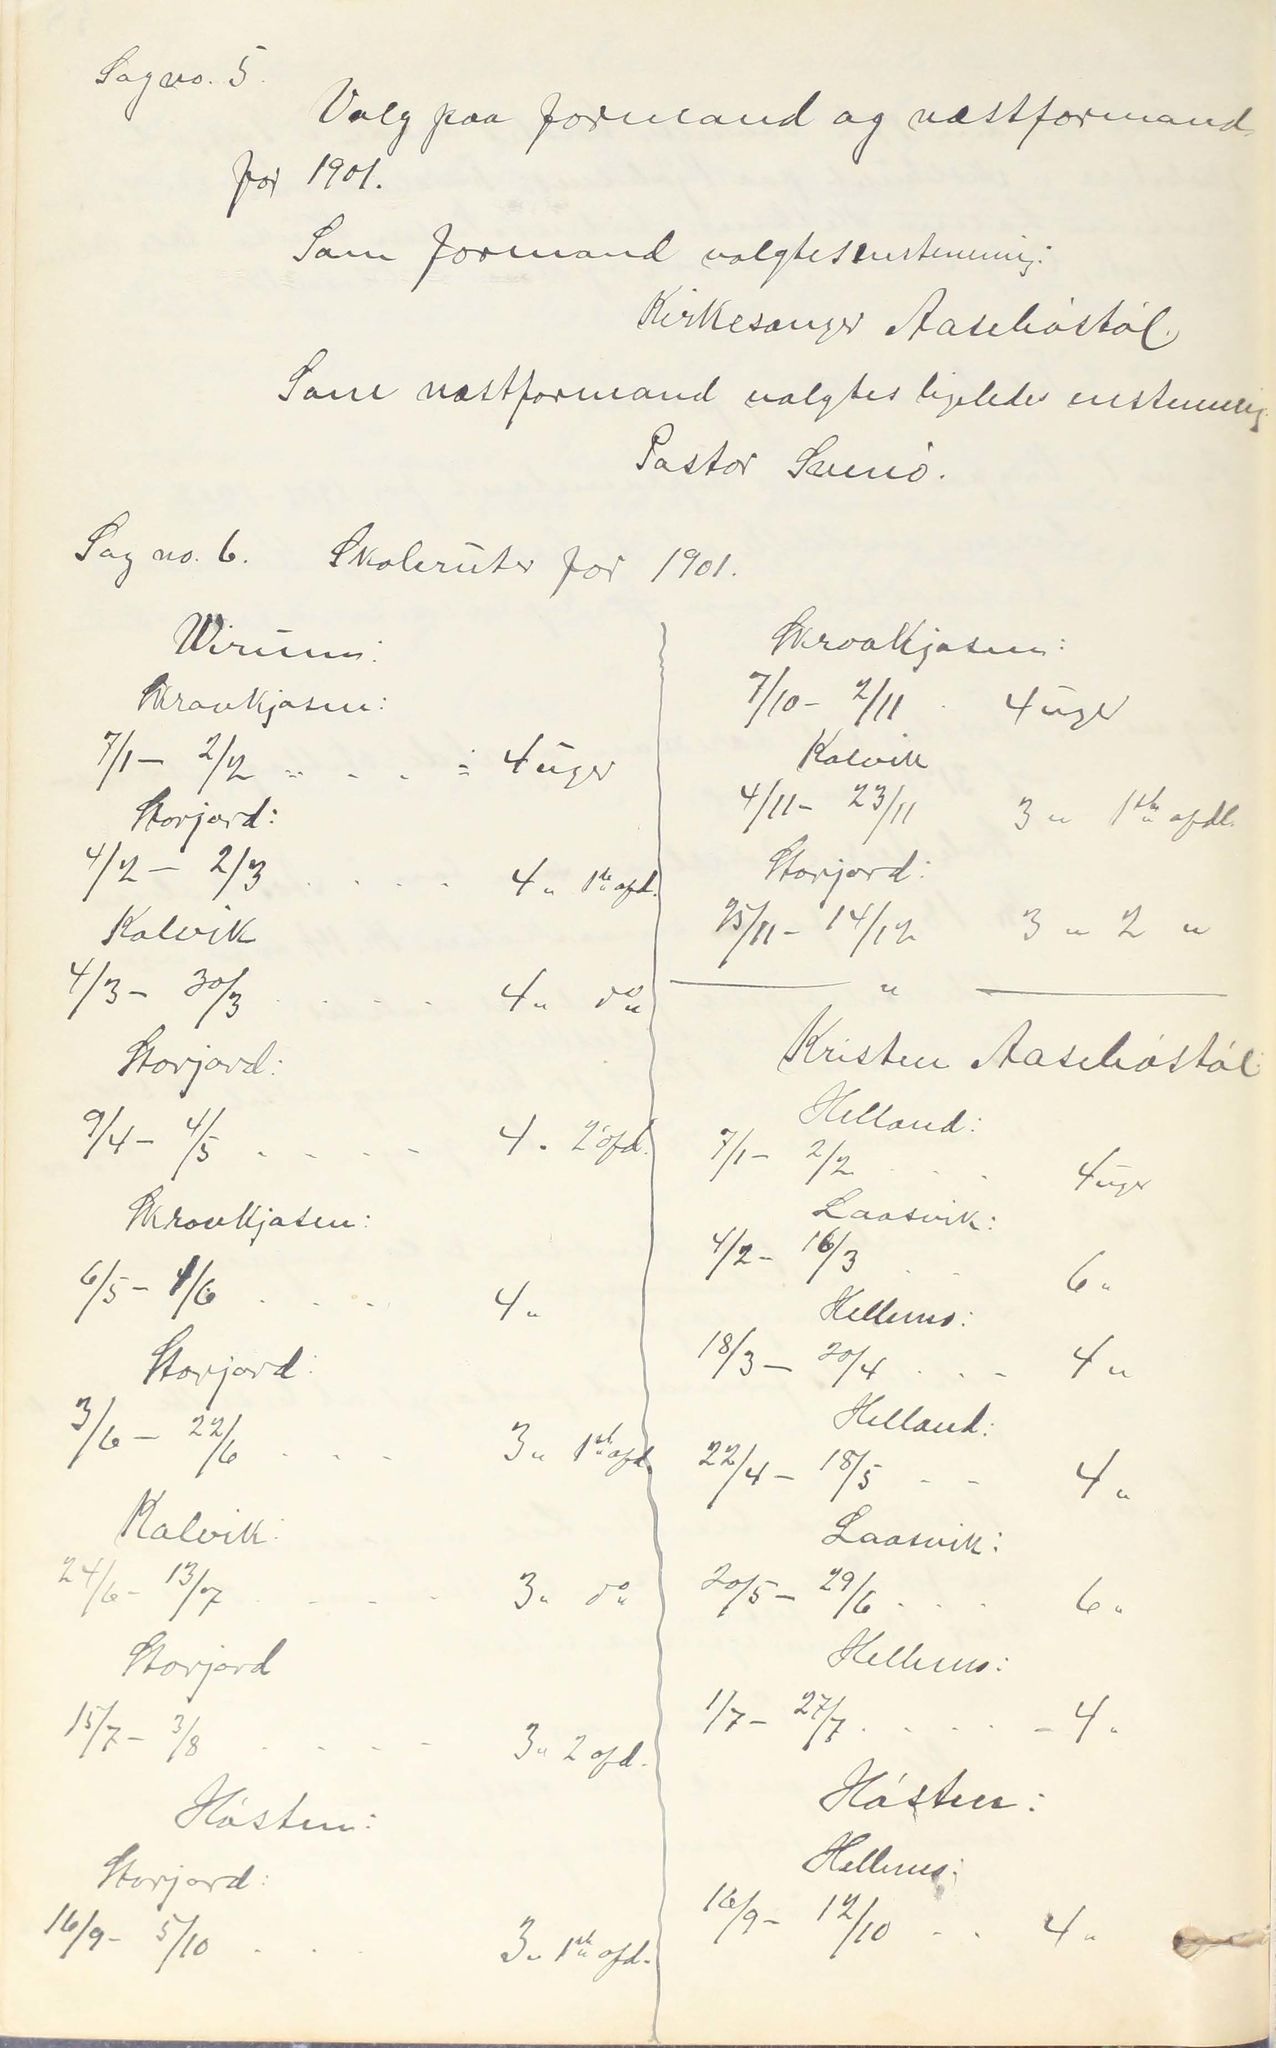 Sag no. 5.
Valg paa formand og næstformand
for 1901.
Som formand valgtes enstemmig:
Kirkesanger Aaseliøstøl.
Som næstformand valgtes ligeledes enstemmig
Pastor
Sag no. 6. Skoleruter for 1901.
Wirum:
Skrovkjosen:
7/1 - 2/2 " . . . = 4 uger
Storjord:
4/2 - 2/3 . . . . 4 " 1ste afd.
Kalvik
4/3 - 30/3 . . . . 4 " do "
Storjord:
9/4 - 4/5 . . . . 4 . 2 afd.
Skrovkjosen:
6/5 - 1/6 . . . 4 "
Storjord:
3/6 - 22/6 . . . 3 " 1ste afd.
Kalvik:
24/6 - 13/7 . . . . 3 " do "
Storjord
15/7 - 3/8 . . . . 3 " 2 afd.
Høsten:
Storjord:
16/9 - 5/10 . . . 3 " 1ste afd.
Skrovkjosen:
7/10 - 2/11 . 4 uger
Kalvik
4/11 - 23/11 3 " 1ste afdl.
Storjord:
25/11 - 14/12 3 " 2 "
"
Kristen Aaseliøstøl
Helland:
7/1 - 2/2 . . . 4 uger
Laasvik:
4/2 - 16/3 . . 6 "
Hellemo:
18/3 - 20/4 . . . 4 "
Helland:
22/4 - 18/5 . . 4 "
Laasvik:
20/5 - 29/6 . . . 6 "
Hellemo:
1/7 - 27/7 . . . . . 4 "
Høsten:
Hellemo:
16/9 - 12/10 . . 4 "